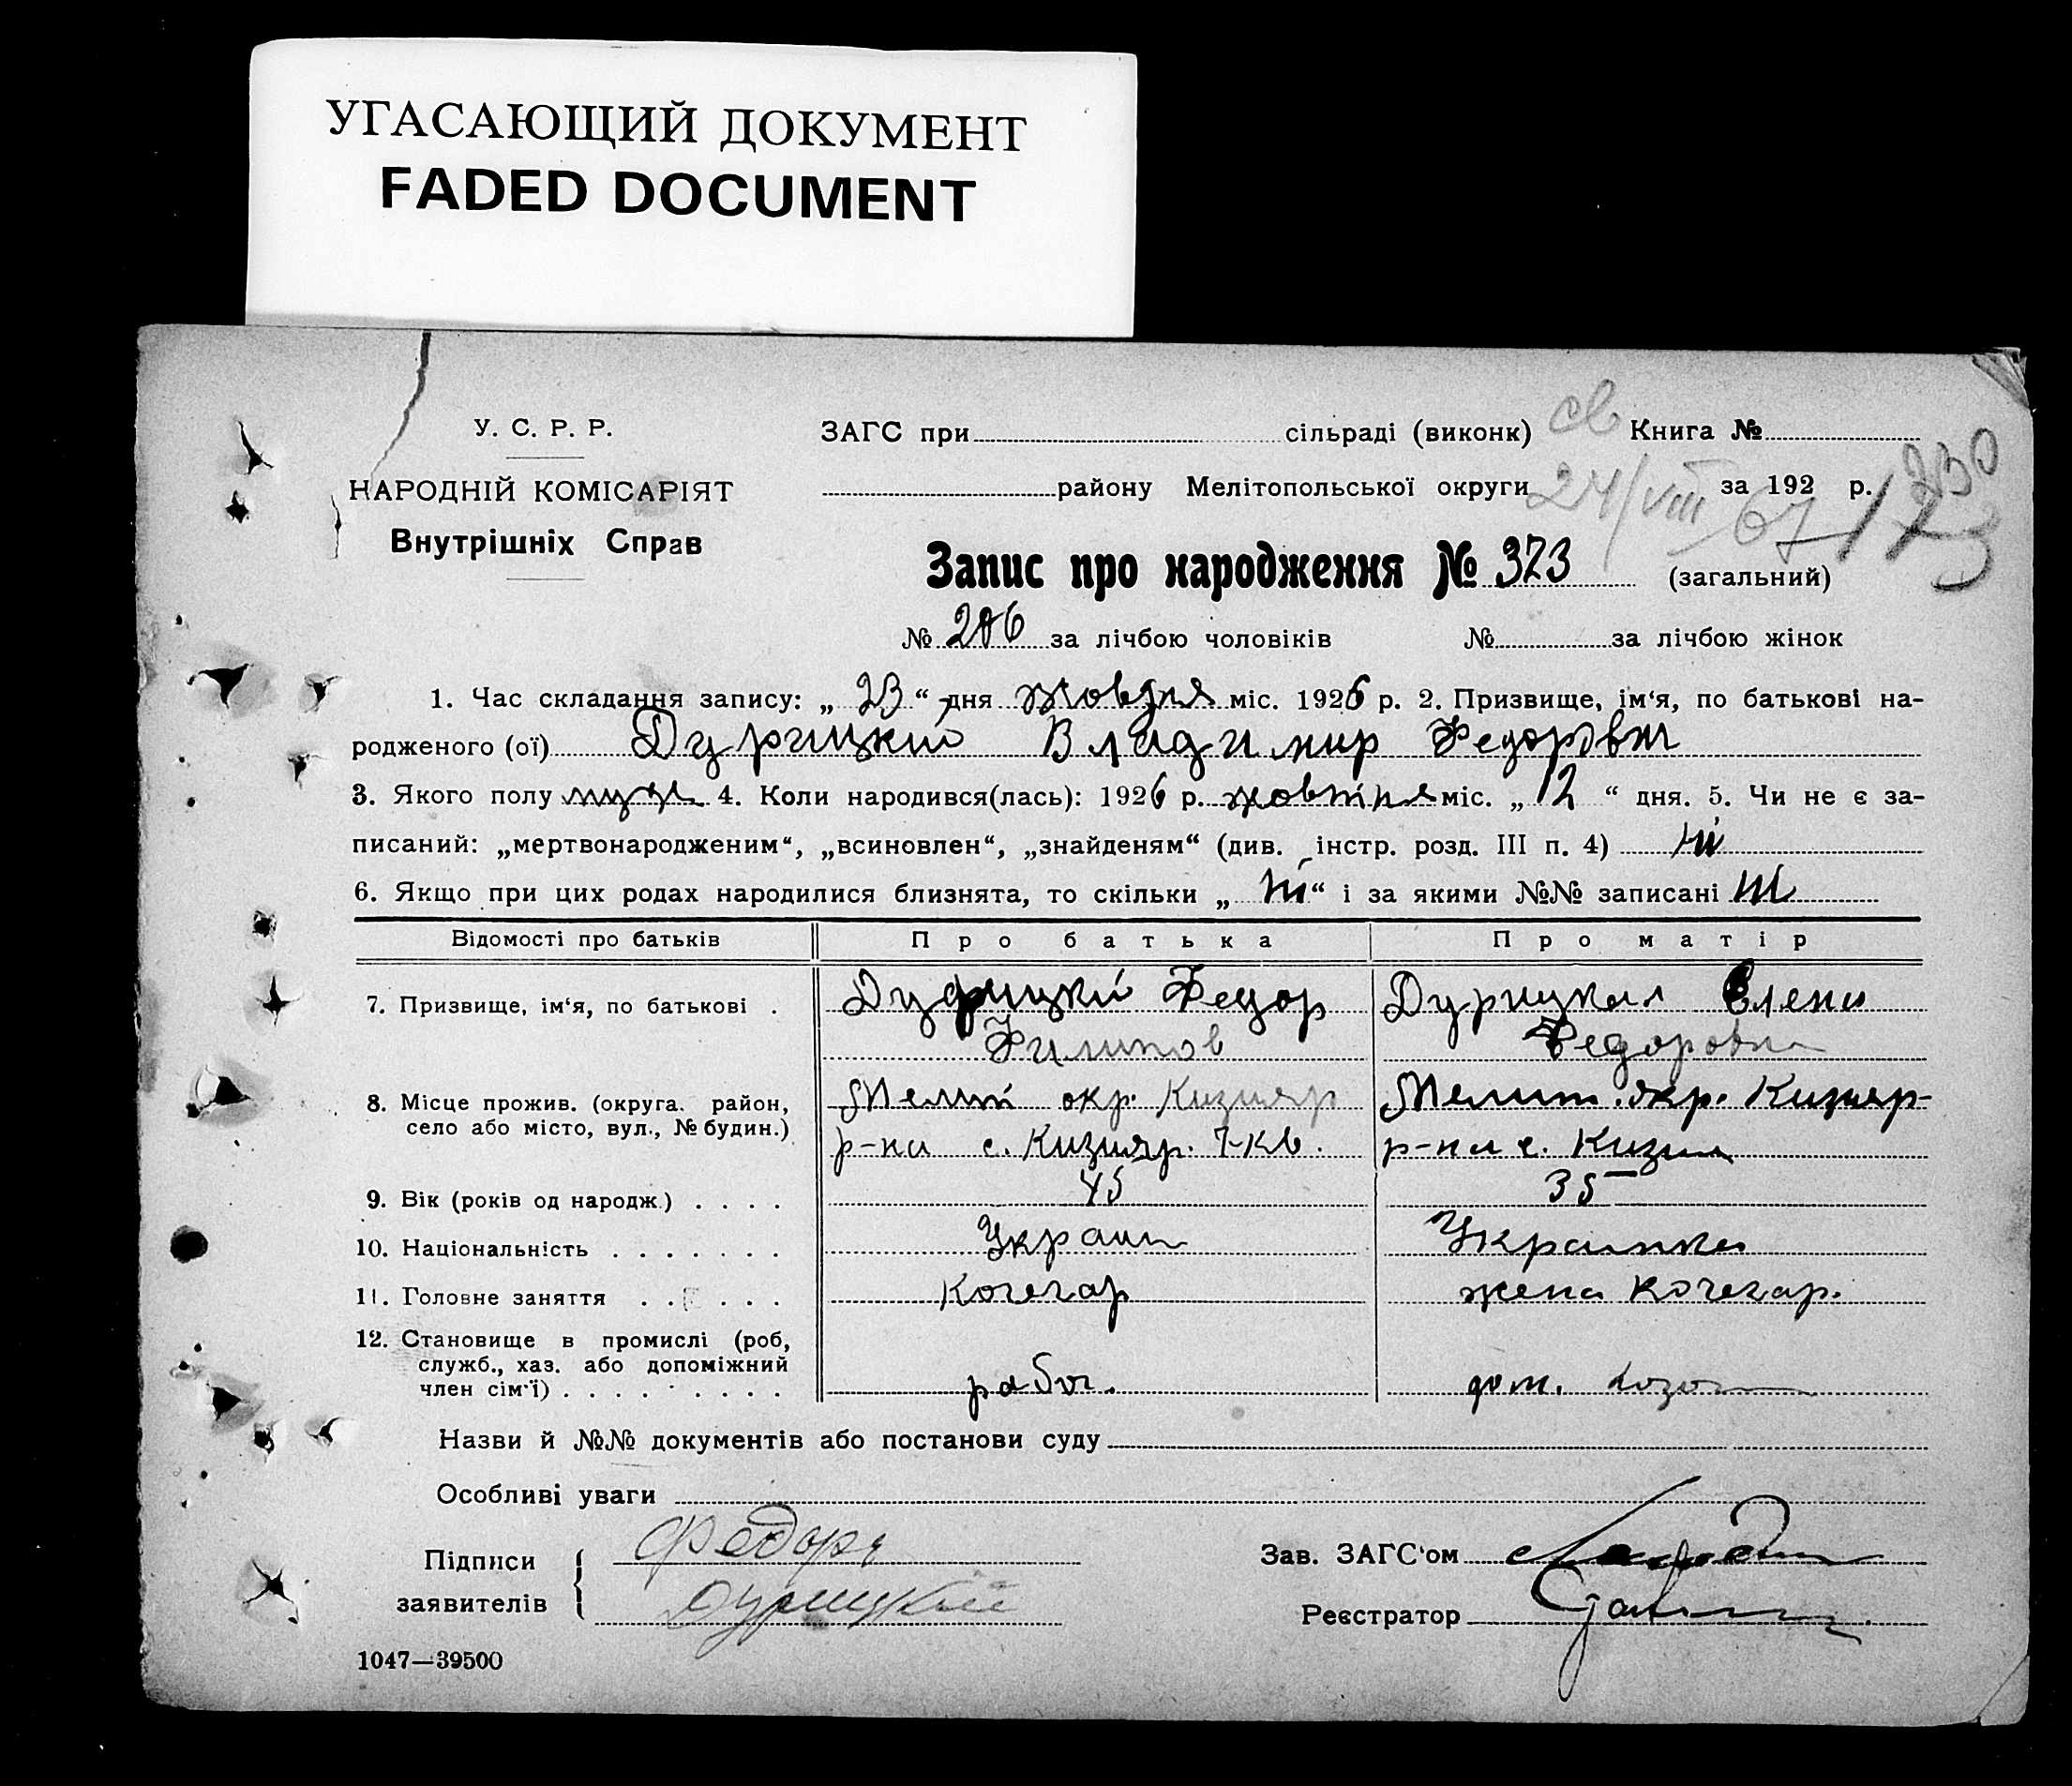 УГАСАЮЩИЙ ДОКУМЕНТ
FADED DOCUMENT
У. С. Р. Р.
НАРОДНІЙ КОМІСАРІЯТ
Внутрішніх Справ
ЗАГС при сільраді (виконк) св Книга №
району Мелітопольської округи за 192 р.
24/VIII 67
230
173
Запис про народження № 373 (загальний)
№ 206 за лічбою чоловіків № за лічбою жінок
1. Час складання запису: „ 23 “ дня жовтня міс. 1926 р. 2. Призвище, ім‘я, по батькові на-
родженого (ої) Дурицкий Владимир Федорович
3. Якого полу муж 4. Коли народився(лась): 1926 р. жовтня міс. „ 12 “ дня. 5. Чи не є за-
писаний: „мертвонародженим“, „всиновлен“, „знайденям“ (див. інстр. розд. III п. 4) ні
6. Якщо при цих родах народилися близнята, то скільки „ ні “ і за якими №№ записані ні
Відомості про батьків Про батька Про матір
7. Призвище, ім‘я, по батькові . Дурицкий Федор Дурицкая Елена
Филипов Федоровна
8. Місце прожив. (округа. район, село або місто, вул., № будин.)
Мелит окр. Кизияр Мелит. окр. Кизияр-
р-на с. Кизияр. 7-кв. р-на с. Кизия
9. Вік (років од народж.) . . . . 45 35
10. Національність . . . . . . . Украин Украинка
11. Головне заняття . . . . . Кочегар жена кочегар.
12. Становище в промислі (роб,
служб., хаз. або допоміжний
член сім‘ї) . . . . . . . . . рабоч. дом. хозя
Назви й №№ документів або постанови суду
Особливі уваги
Підписи заявителів Федоръ
Дурицкий
Зав. ЗАГС‘ом
Реєстратор
1047—39500